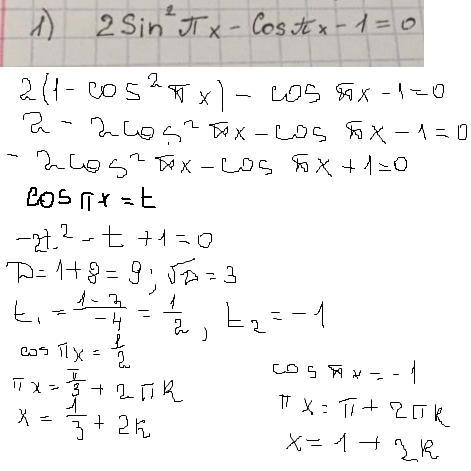 1) 2Sin²πx - Cosπx - 1 = 0
2(1 - cos²πx) - cos πx - 1 = 0
2 - 2cos²πx - cos πx - 1 = 0
- 2cos²πx - cos πx + 1 = 0
cos πx = t
-2t² - t + 1 = 0
D = 1 + 8 = 9; √D = 3
t₁ = (1 - 3)/(-4) = 1/2, t₂ = -1
cos πx = 1/2
πx = π/3 + 2πk
x = 1/3 + 2k
cos πx = -1
πx = π + 2πk
x = 1 + 2k